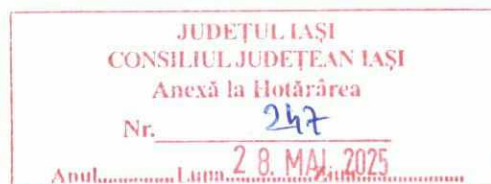 JUDEȚUL IAȘI
CONSILIUL JUDEȚEAN IAȘI
Anexă la Hotărârea
Nr. 247
Anul............Luna 28. MAI. 2025 Ziua............